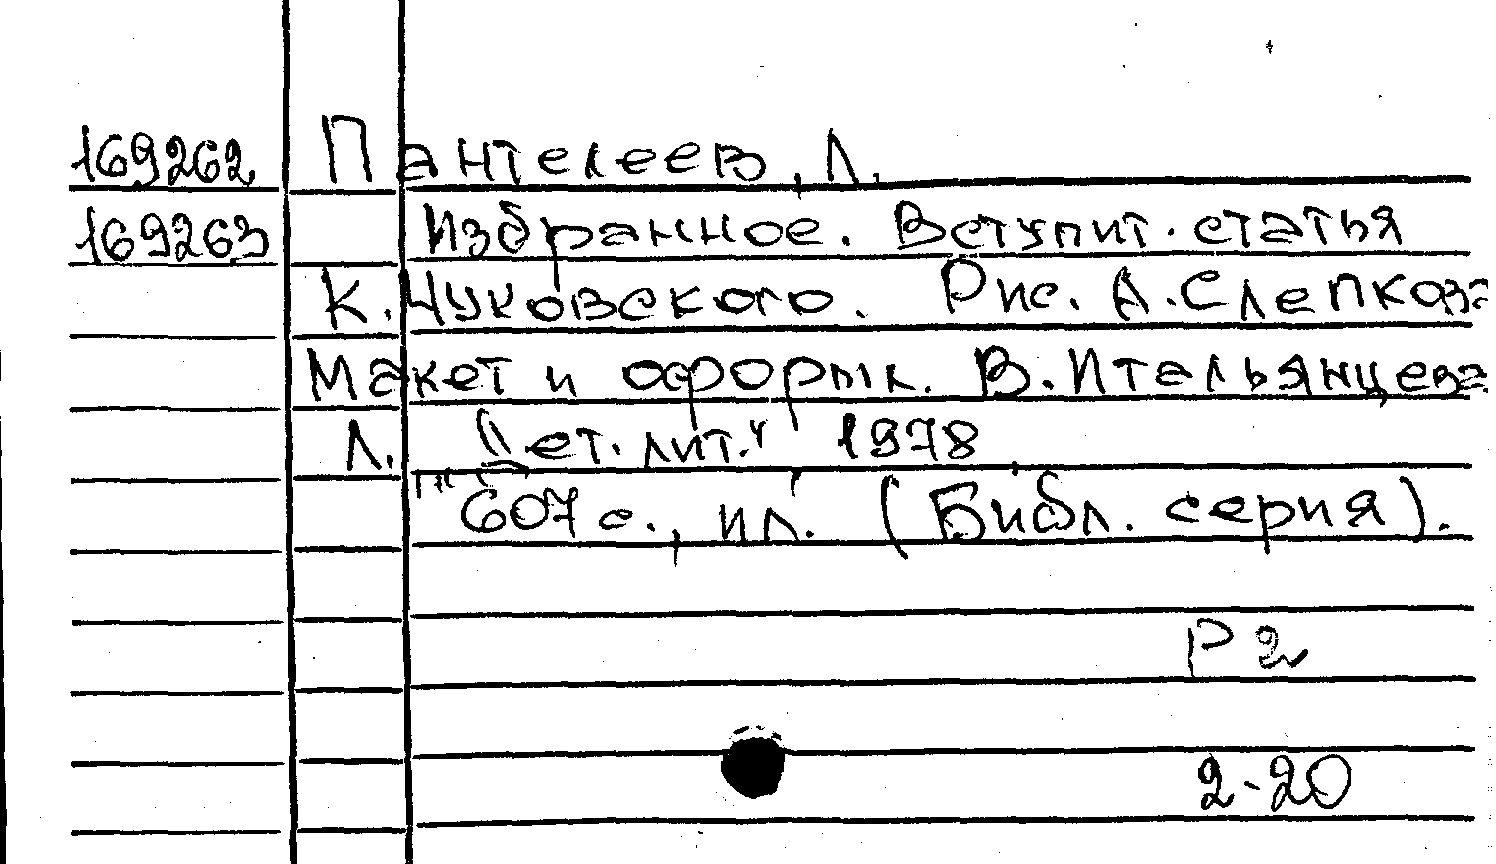 169262 Пантелеев, Л.
169263 Избранное. Вступит. статья
К. Чуковского. Рис. А. Слепкова
Макет и оформ. В. Итальянцева
Л. "Дет. лит." 1978
607 с., ил. (Библ. серия).
Р2
2-20